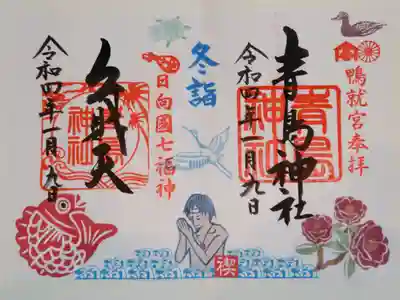 鴨就宮奉拝
青島神社
青島神社
令和四年一月九日
冬詣
日向國七福神
弁財天
神社
令和四年一月九日
禊